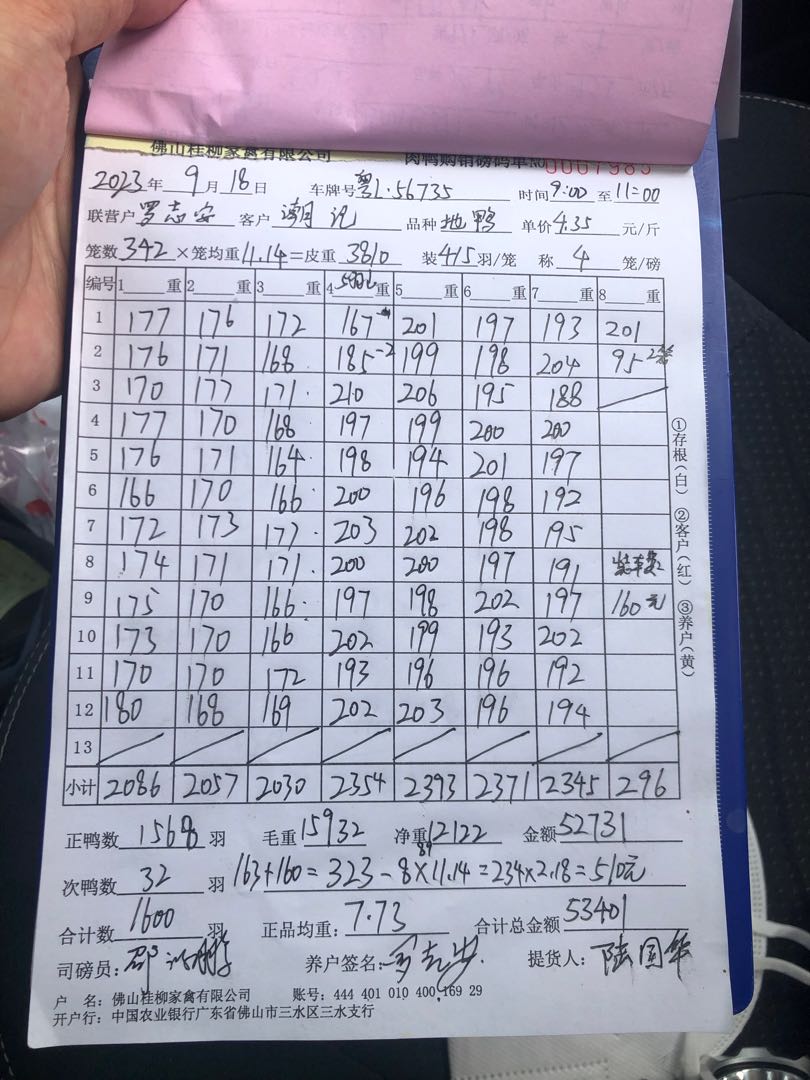 佛山桂柳家禽有限公司 肉鸭购销磅码单№ 0067985
2023年 9月18日 车牌号粤L·56735 时间9:00至11:00
联营户罗志安 客户潮记 品种地鸭 单价4.35元/斤
笼数342×笼均重11.14=皮重3810 装4/5羽/笼 称4笼/磅
编号 1重 2重 3重 4重 5重 6重 7重 8重
1 177 176 172 167 201 197 193 201
2 176 171 168 185-2 199 198 204 95
3 170 177 171 210 206 195 188
4 177 170 168 197 199 200 200
5 176 171 164 198 194 201 197
6 166 170 166 200 196 198 192
7 172 173 177 203 202 198 195
8 174 171 171 200 200 197 191 装车费
9 175 170 166 197 198 202 197 160元
10 173 170 166 202 199 193 202
11 170 170 172 193 196 196 192
12 180 168 169 202 203 196 194
13
小计 2086 2057 2030 2354 2393 2371 2345 296
正鸭数1568羽 毛重15932 净重12122 金额52731
89
次鸭数32羽 163+160=323-8×11.14=234×2.18=510元
合计数1600羽 正品均重:7.73 合计总金额53401
司磅员: 养户签名: 提货人:陆国华
户 名:佛山桂柳家禽有限公司 账号:444 401 010 400 169 29
开户行:中国农业银行广东省佛山市三水区三水支行
①存根(白) ②客户(红) ③养户(黄)